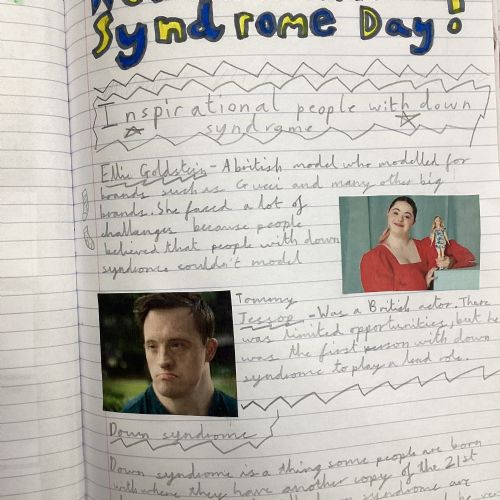 Syndrome Day!
Inspirational people with down
syndrome
Ellie Goldstein - A british model who modelled for
brands such as Gucci and many other big
brands. She faced a lot of
challenges because people
believed that people with down
syndrome couldn't model
Tommy
Jessop - Was a British actor. There
was limited opportunities, but he
was the first person with down
syndrome to play a lead role.
Down syndrome
Down syndrome is a thing some people are born
with where they have another copy of the 21st
syndrome are